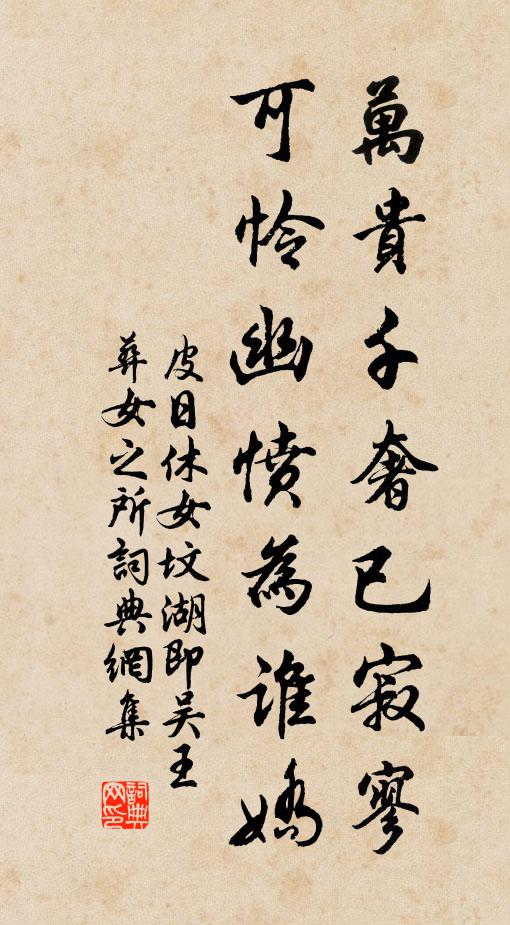 萬貴千奢已寂寥
可憐幽憤為誰嬌
皮日休女坟湖即吴王
葬女之所詞典網集
詞典網印